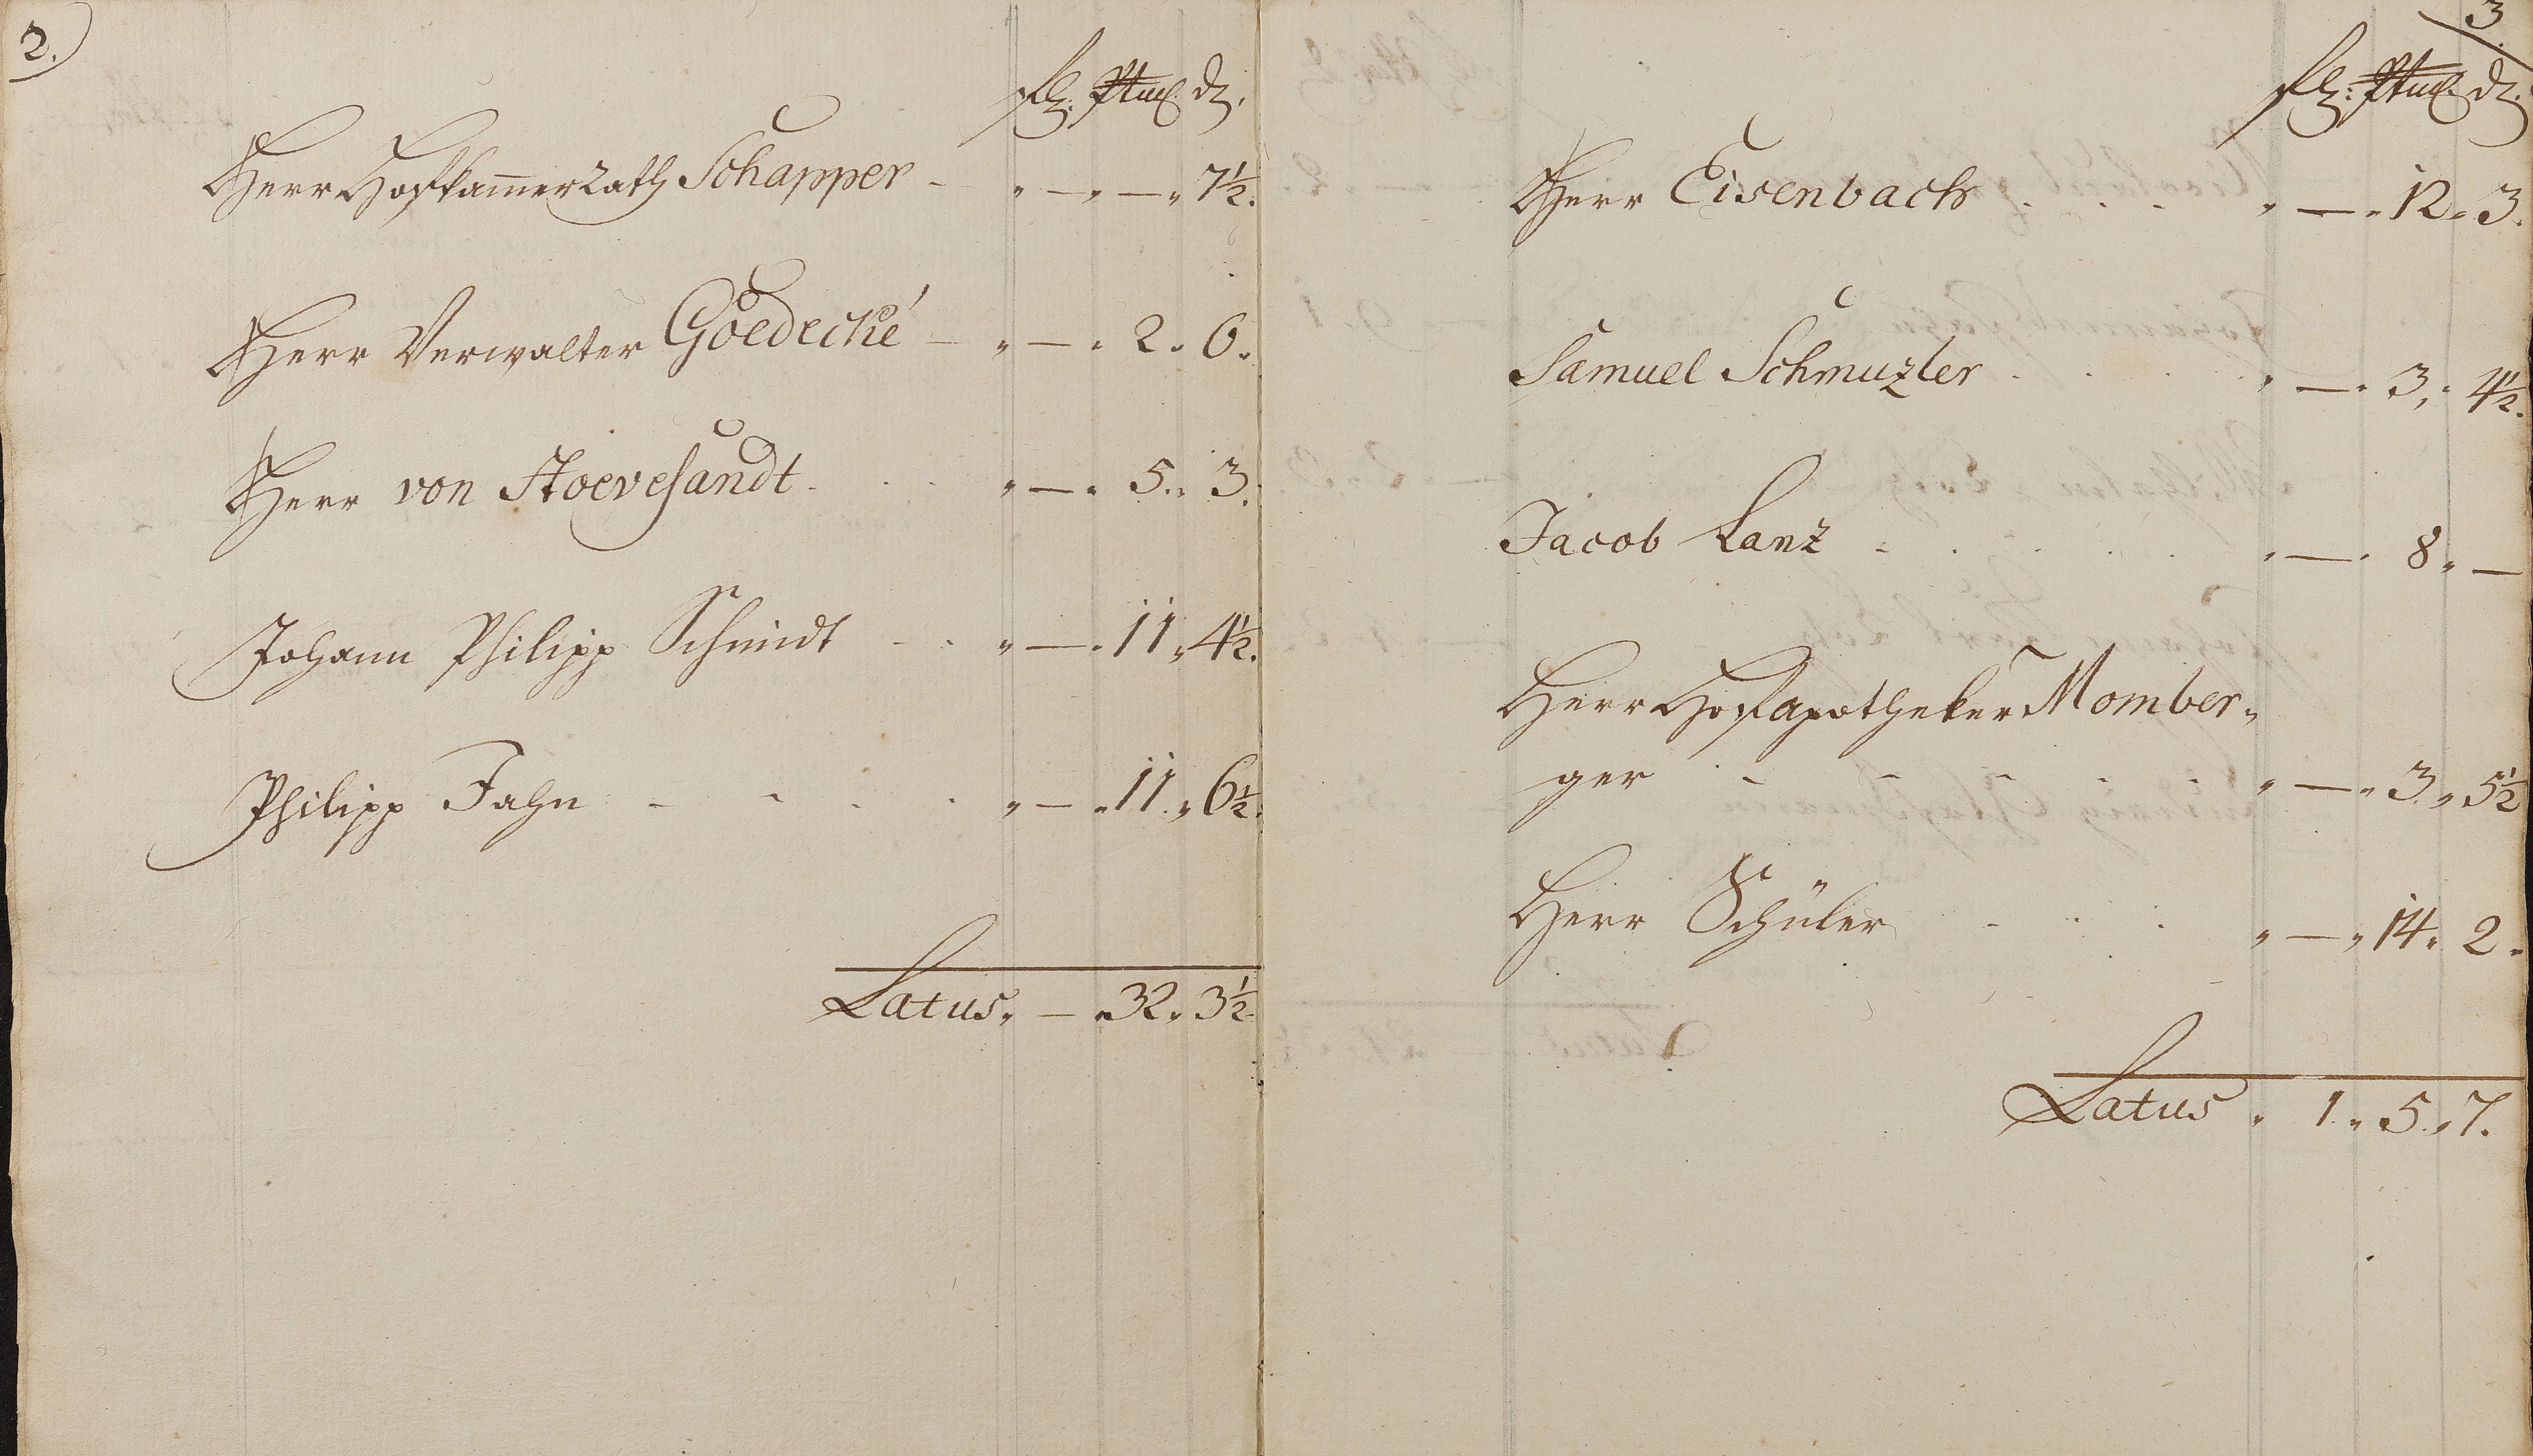 2.
Herr Hofkam̅errath Schapper - " — " — " 7½.
Herr Verwalter Goedecké - " — " 2 " 6.
Herr von Stoevesandt - " — " 5 " 3.
Johann Philipp Schmidt - - " — " 11 " 4½.
Philipp Jahn - - - - " — " 11 " 6½.
Latus " — " 32 " 3½.
3.
Herr Eisenbach - - - " — " 12 " 3.
Samuel Schmuzler - - - " — " 3 " 4½.
Jacob Lanz - - - - " — " 8 " —
Herr Hofapotheker Momber"
ger - - - - - " — " 3 " 5½
Herr Schüler - - - " — " 14 " 2 "
Latus " 1 " 5 " 7.